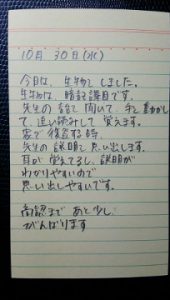 10月 30日(水)
今日は、生物をしました。
生物は、暗記課目です。
先生の話を聞いて、手を動かし
て、追い読みして 覚えます。
家で復習する時、
先生の説明を思い出します。
耳が覚えてるし、説明が
わかりやすいので
思い出しやすいです。
高認まで あと少し、
がんばります